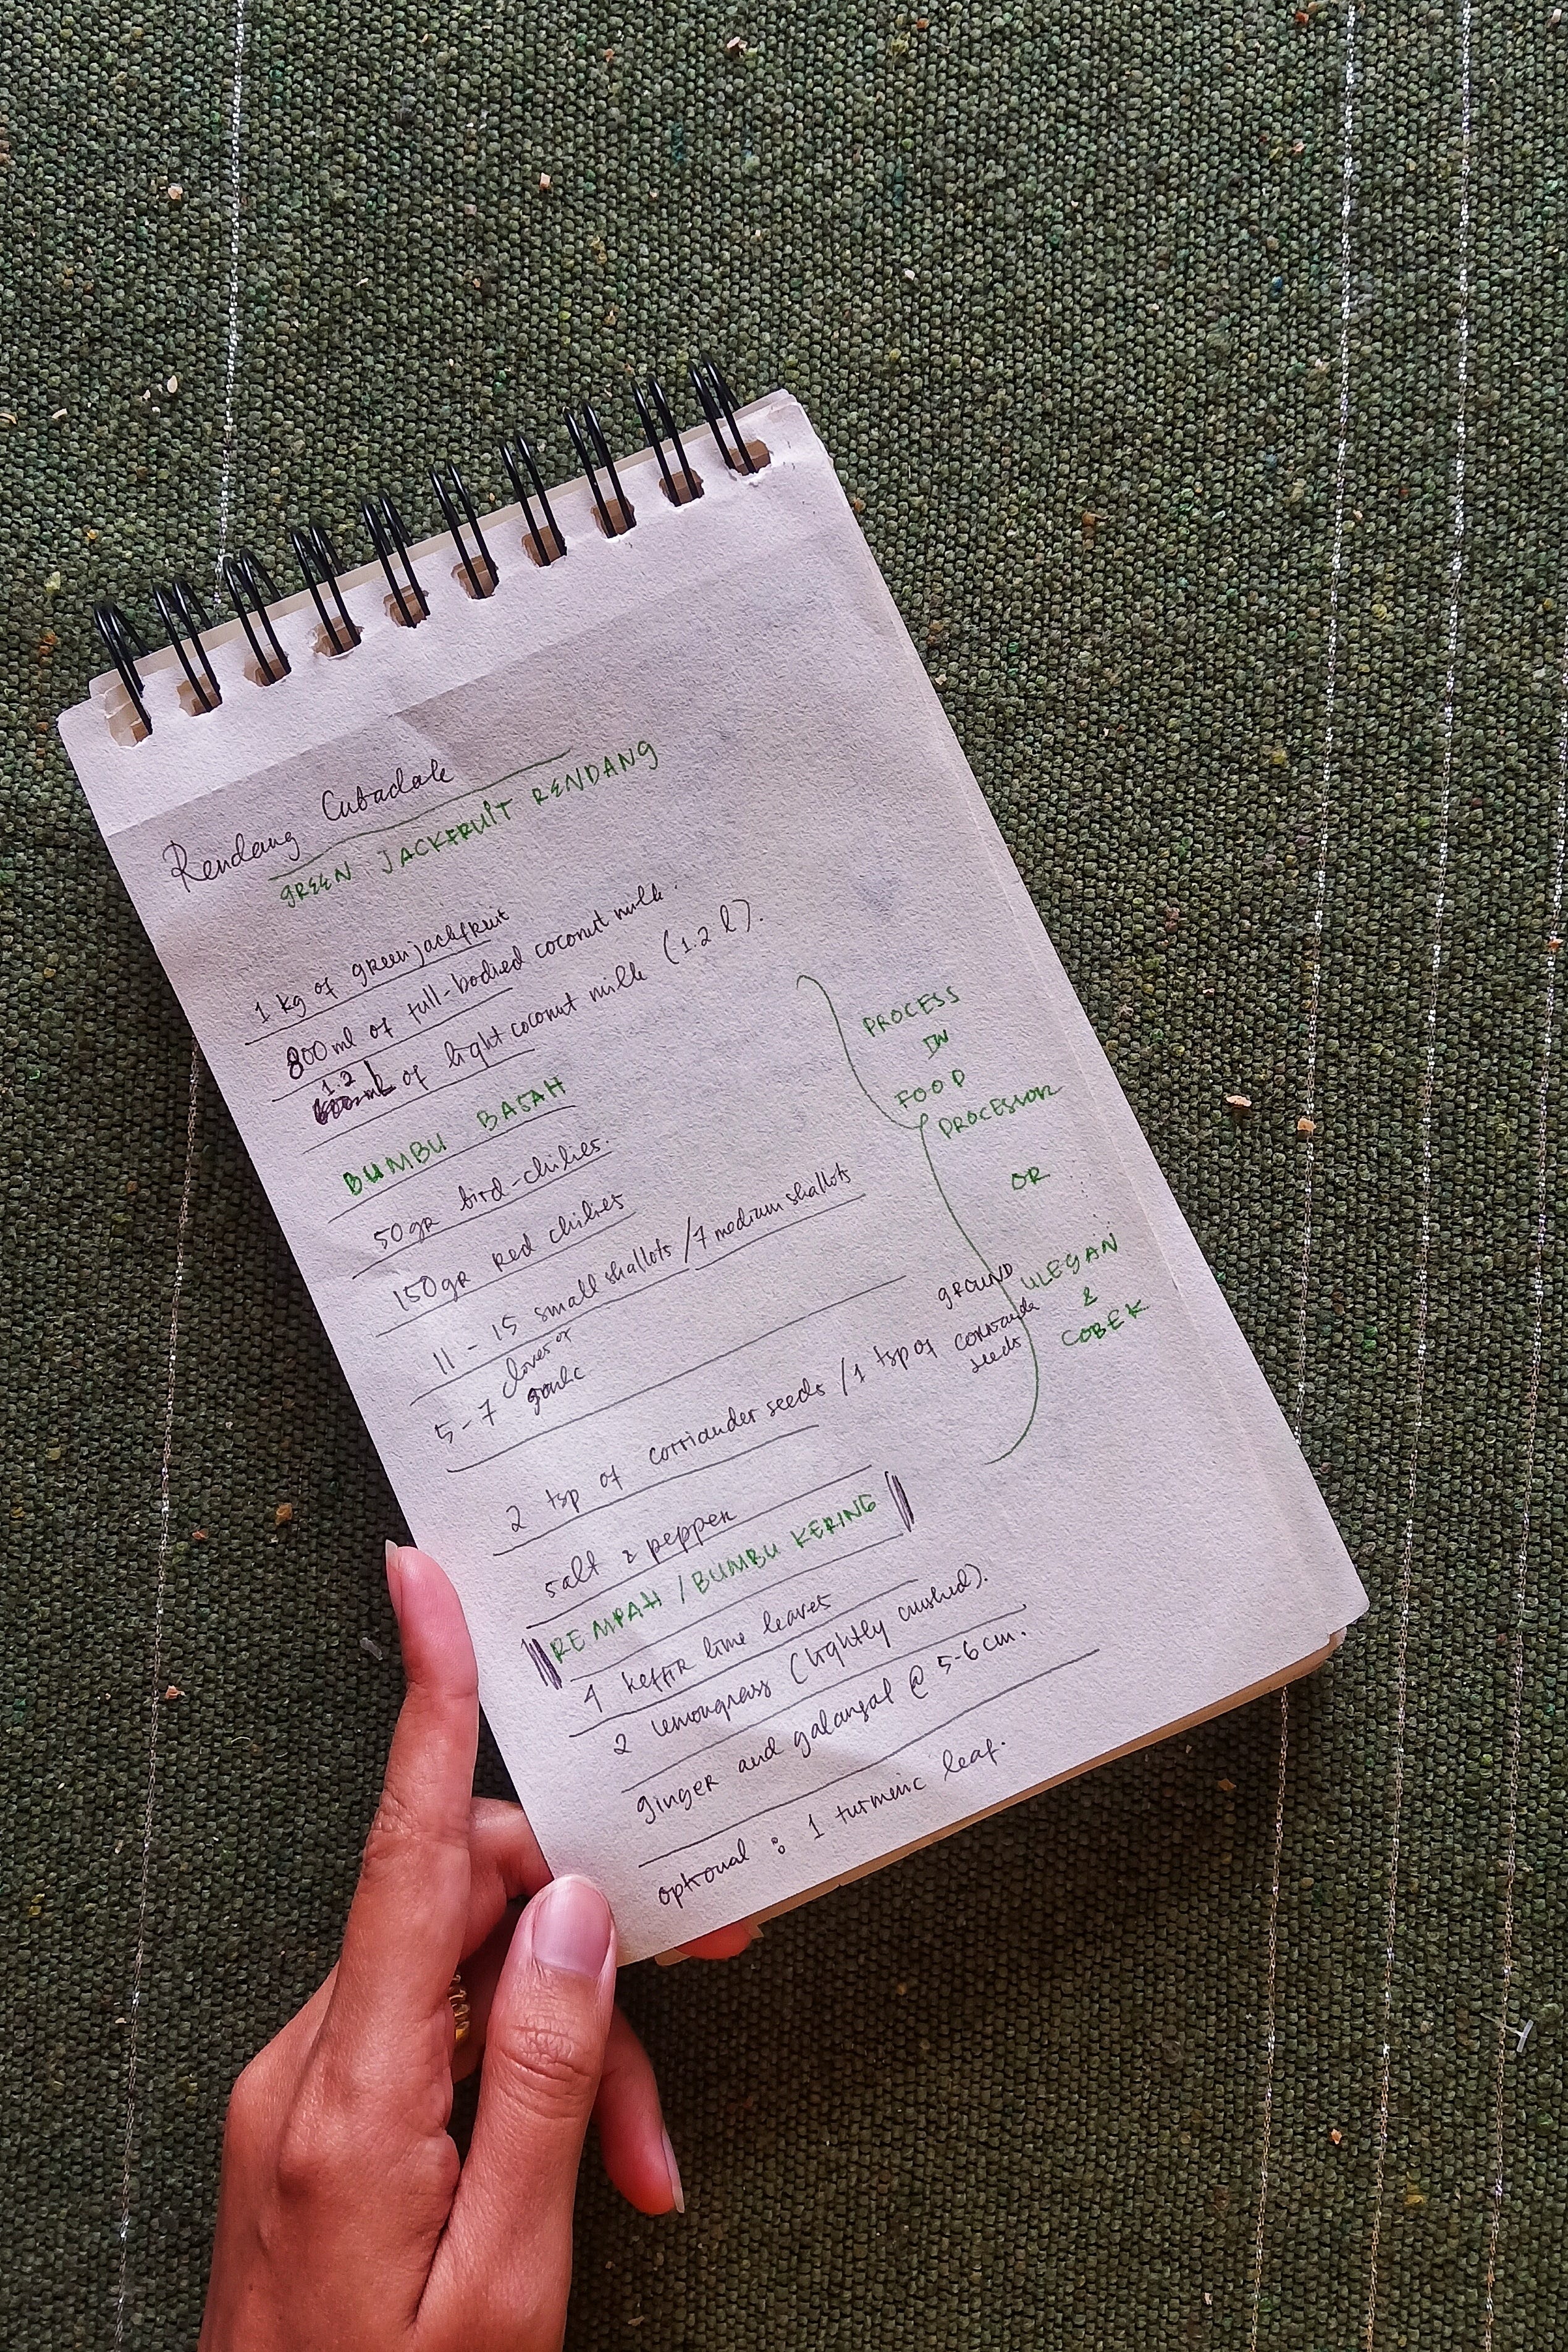 Rendang Cubadak
GREEN JACKFRUIT RENDANG
1 kg of green jackfruit
800 ml of full-bodied coconut milk.
1.2 l of light coconut milk (1.2 l).
BUMBU BASAH
50gr bird-chilies.
150gr red chilies
11 - 15 small shallots / 7 medium shallots
5 - 7 cloves of
garlic
2 tsp of corriander seeds / 1 tsp of GROUND
corriander
seeds
salt & pepper
PROCESS
IN
FOOD
PROCESSOR
OR
ULEGAN
&
COBEK
REMPAH / BUMBU KERING
4 keffir lime leaves
2 lemongrass (lightly crushed).
ginger and galangal @ 5-6 cm.
optional : 1 turmeric leaf.